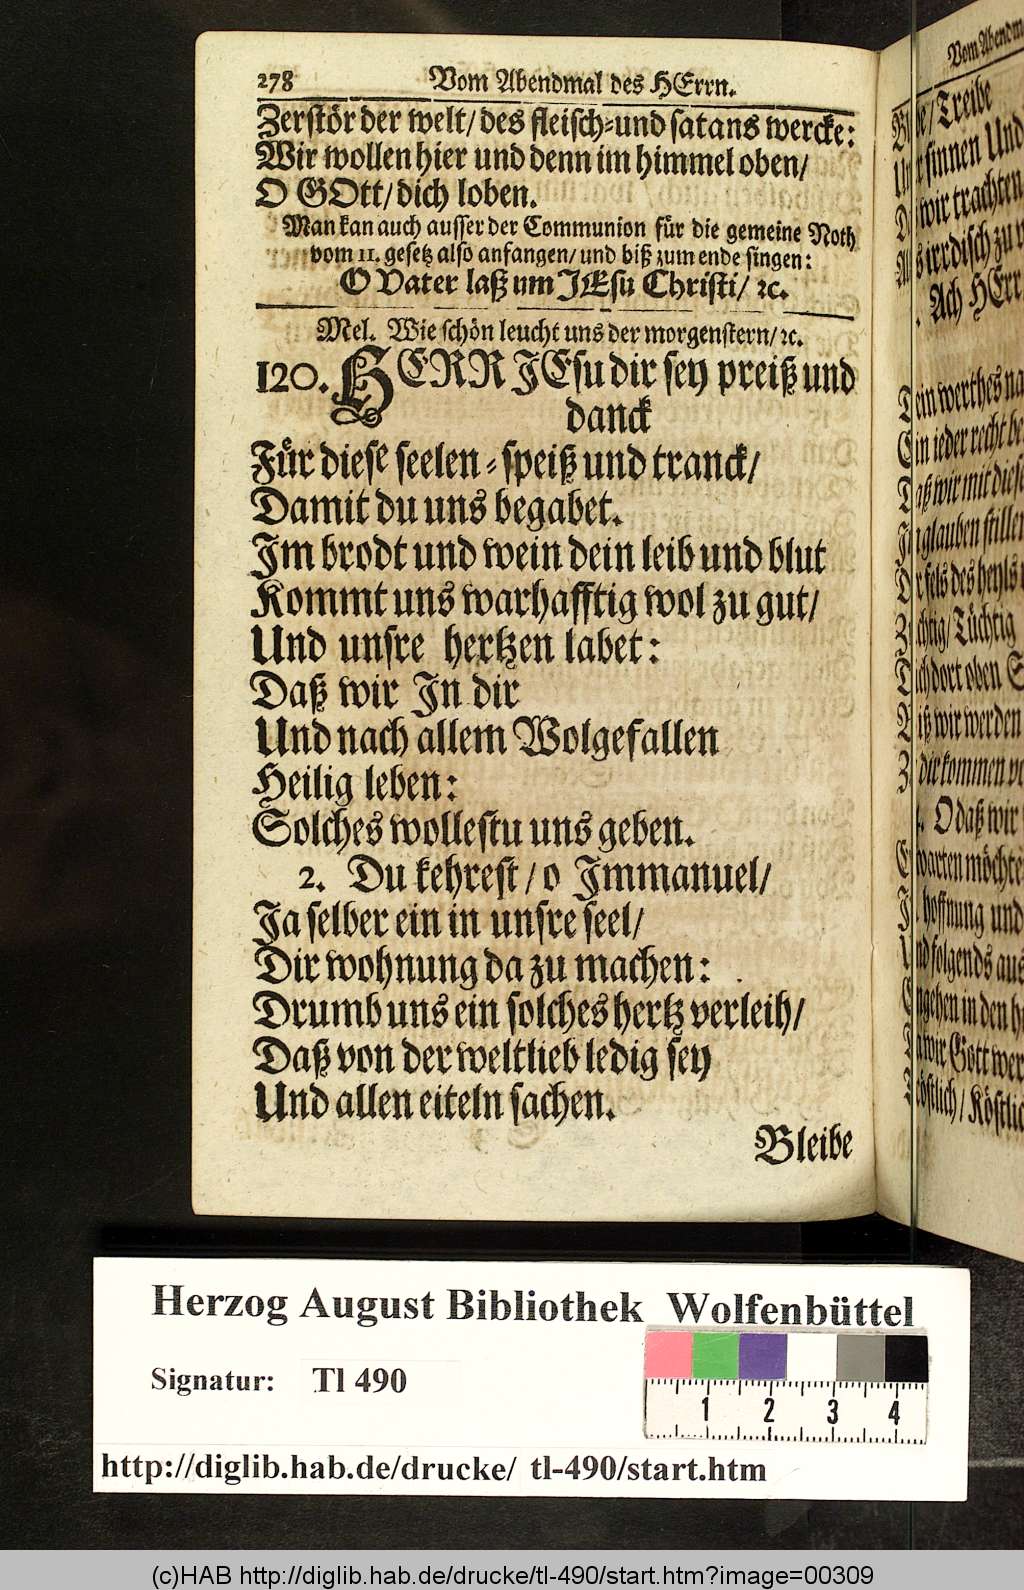 278 Vom Abendmal des HErrn.
Zerstör der welt/ des fleisch-und satans wercke:
Wir wollen hier und denn im himmel oben/
O GOtt/ dich loben.
Man kan auch ausser der Communion für die gemeine Noth
vom 11. gesetz also anfangen/ und biß zum ende singen:
O Vater laß um JEsu Christi/ ꝛc.
Mel. Wie schön leucht uns der morgenstern/ ꝛc.
120. HERR JEsu dir sey preiß und
danck
Für diese seelen-speiß und tranck/
Damit du uns begabet.
Im brodt und wein dein leib und blut
Kommt uns warhafftig wol zu gut/
Und unsre hertzen labet:
Daß wir In dir
Und nach allem Wolgefallen
Heilig leben:
Solches wollestu uns geben.
2. Du kehrest/ o Immanuel/
Ja selber ein in unsre seel/
Dir wohnung da zu machen:
Drumb uns ein solches hertz verleih/
Daß von der weltlieb ledig sey
Und allen eiteln sachen.
Bleibe
Vom
Treibe
sinnen Und
wir trachten
irrdisch zu
Ach HErr
Dein werthes
ieder recht
wir mit
glauben
fels des heyls
Tüchtig
dort oben
wir werden
dir kommen
O daß wir
warten
hoffnung und
folgends aus
in den
wir Gott
Herzog August Bibliothek Wolfenbüttel
Signatur: Tl 490
1 2 3 4
http://diglib.hab.de/drucke/ tl-490/start.htm
(c)HAB http://diglib.hab.de/drucke/tl-490/start.htm?image=00309